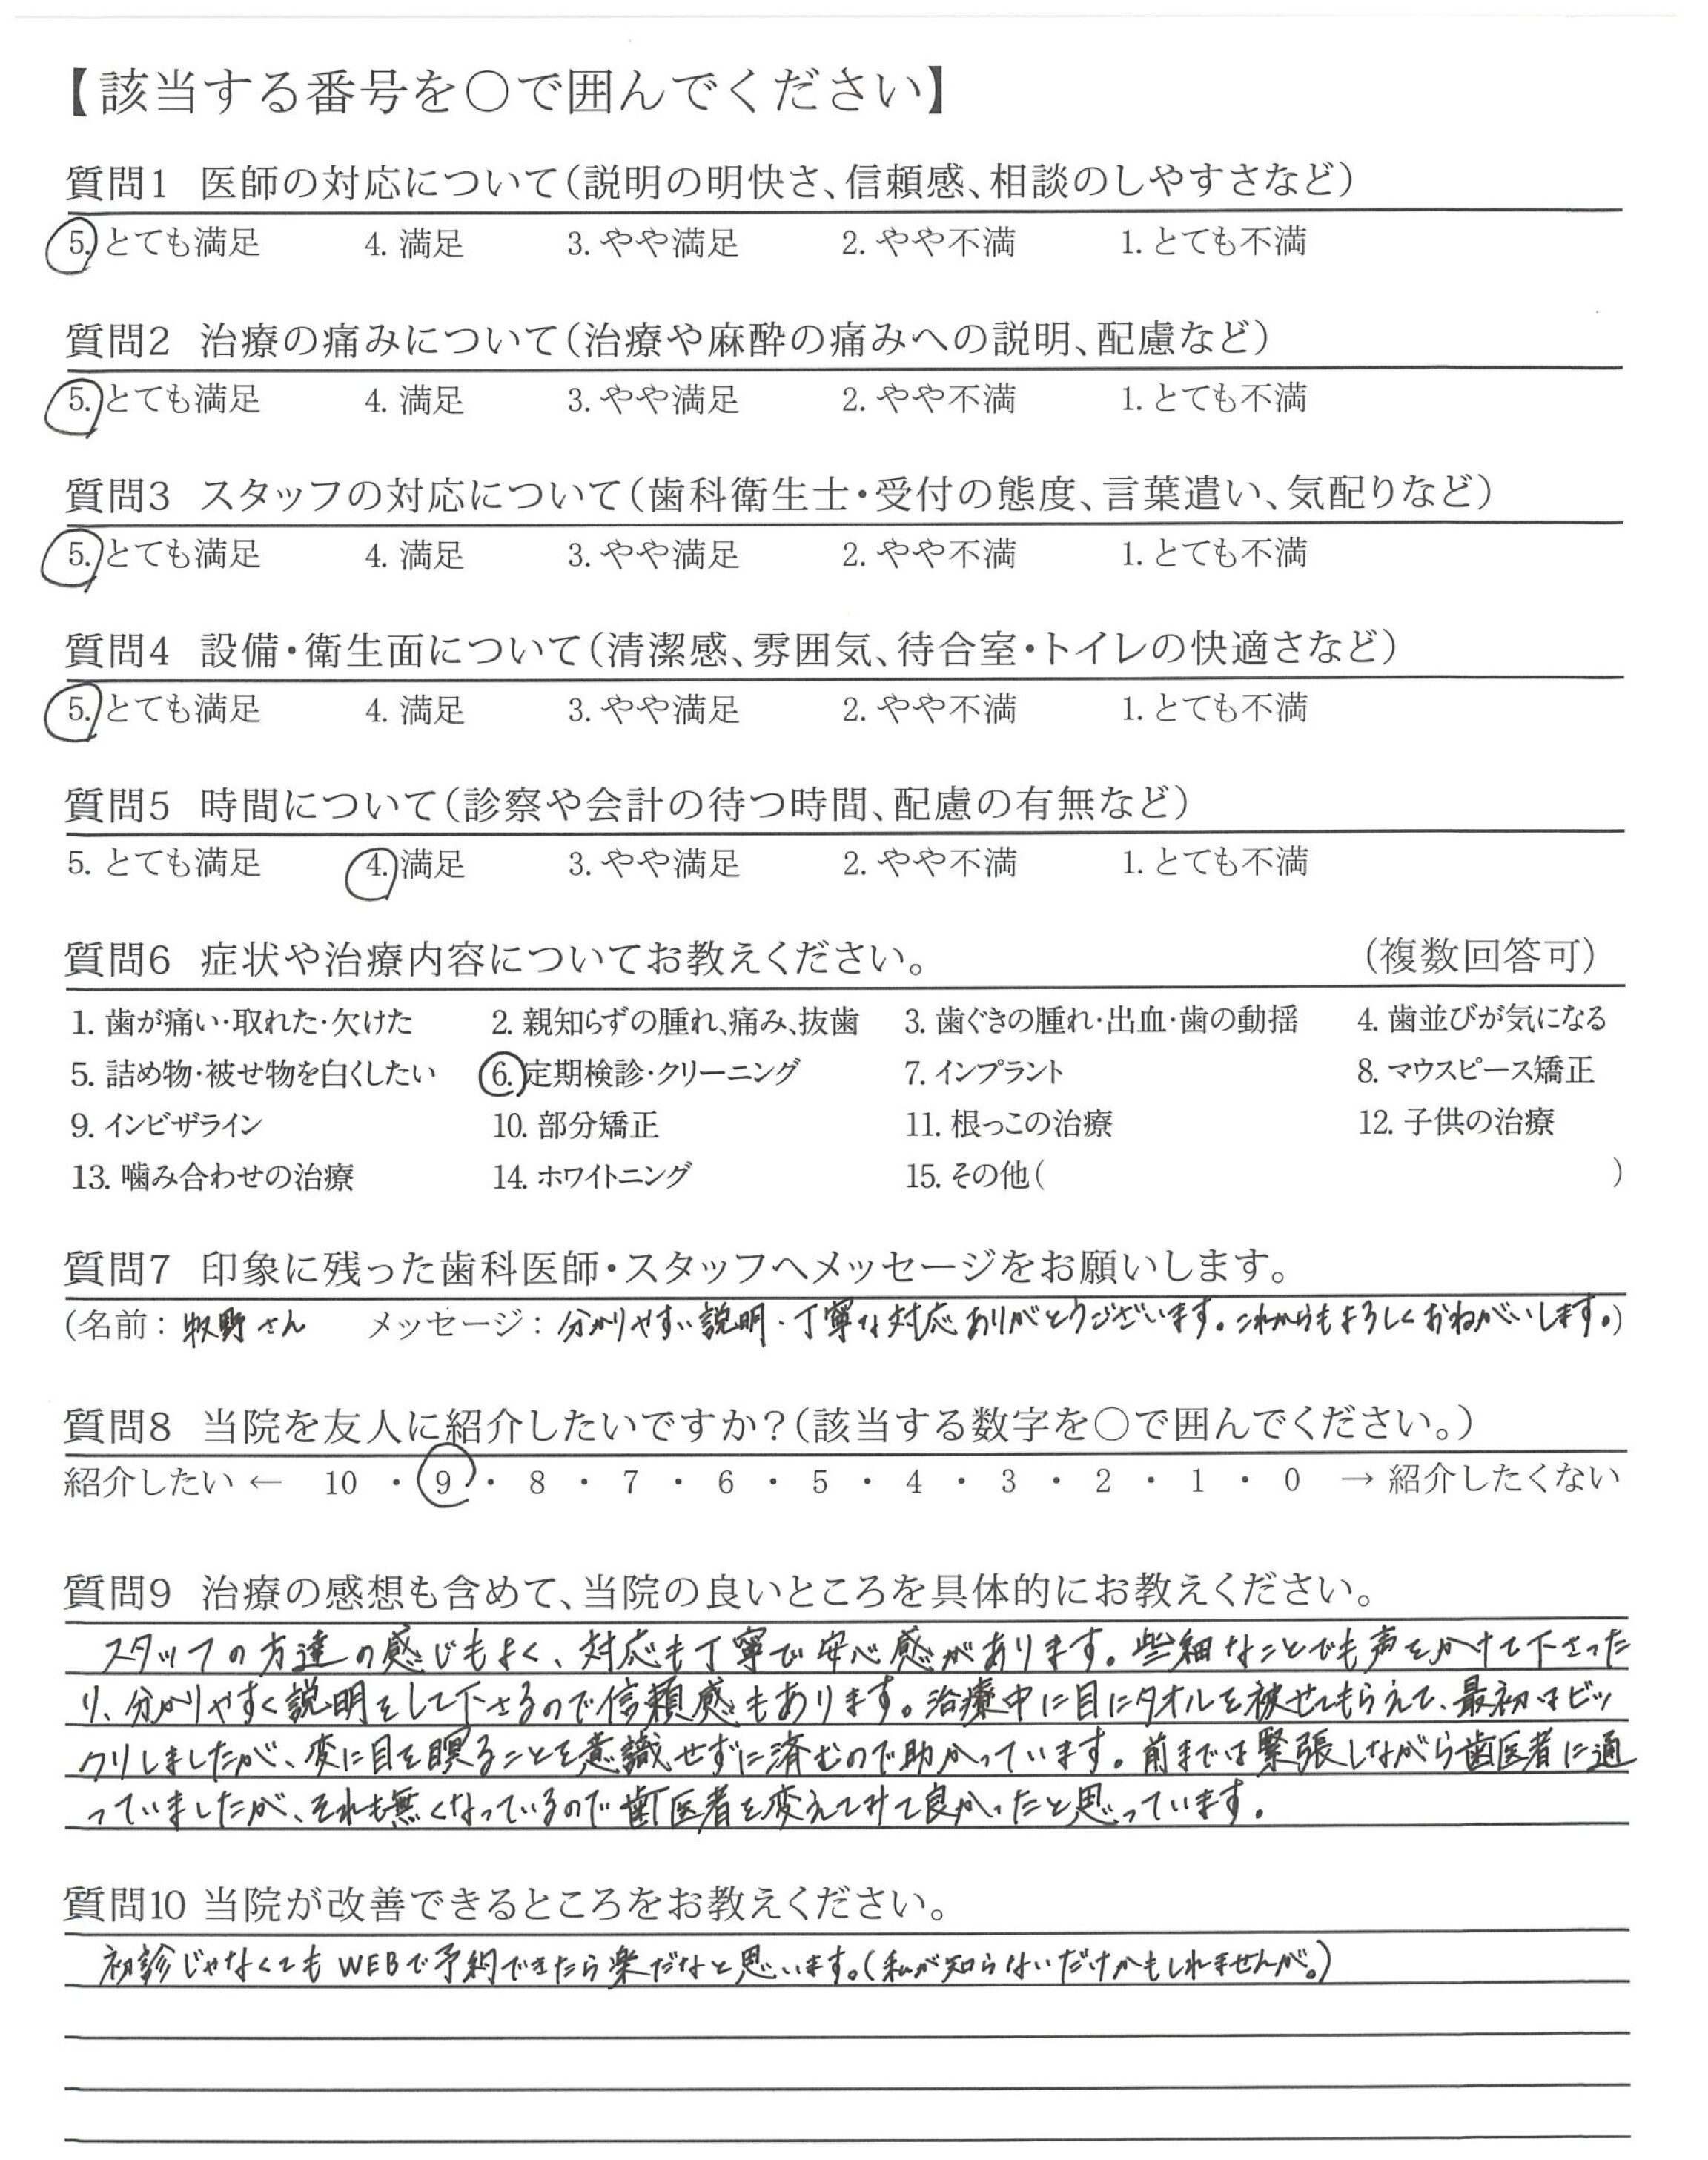 【該当する番号を○で囲んでください】
質問1 医師の対応について(説明の明快さ、信頼感、相談のしやすさなど)
5. とても満足 4. 満足 3. やや満足 2. やや不満 1. とても不満
質問2 治療の痛みについて(治療や麻酔の痛みへの説明、配慮など)
5. とても満足 4. 満足 3. やや満足 2. やや不満 1. とても不満
質問3 スタッフの対応について(歯科衛生士・受付の態度、言葉遣い、気配りなど)
5. とても満足 4. 満足 3. やや満足 2. やや不満 1. とても不満
質問4 設備・衛生面について(清潔感、雰囲気、待合室・トイレの快適さなど)
5. とても満足 4. 満足 3. やや満足 2. やや不満 1. とても不満
質問5 時間について(診察や会計の待つ時間、配慮の有無など)
5. とても満足 4. 満足 3. やや満足 2. やや不満 1. とても不満
質問6 症状や治療内容についてお教えください。 (複数回答可)
1. 歯が痛い・取れた・欠けた 2. 親知らずの腫れ、痛み、抜歯 3. 歯ぐきの腫れ・出血・歯の動揺 4. 歯並びが気になる
5. 詰め物・被せ物を白くしたい 6. 定期検診・クリーニング 7. インプラント 8. マウスピース矯正
9. インビザライン 10. 部分矯正 11. 根っこの治療 12. 子供の治療
13. 噛み合わせの治療 14. ホワイトニング 15. その他( )
質問7 印象に残った歯科医師・スタッフへメッセージをお願いします。
(名前: 牧野さん メッセージ: 分かりやすい説明・丁寧な対応ありがとうございます。これからもよろしくおねがいします。)
質問8 当院を友人に紹介したいですか?(該当する数字を○で囲んでください。)
紹介したい ← 10 ・ 9 ・ 8 ・ 7 ・ 6 ・ 5 ・ 4 ・ 3 ・ 2 ・ 1 ・ 0 → 紹介したくない
質問9 治療の感想も含めて、当院の良いところを具体的にお教えください。
スタッフの方達の感じもよく、対応も丁寧で安心感があります。些細なことでも声をかけて下さった
り、分かりやすく説明をして下さるので信頼感もあります。治療中に目にタオルを被せてもらえて、最初はビッ
クリしましたが、変に目を瞑ることを意識せずに済むので助かっています。前までは緊張しながら歯医者に通
っていましたが、それも無くなっているので歯医者を変えてみて良かったと思っています。
質問10 当院が改善できるところをお教えください。
初診じゃなくてもWEBで予約できたら楽だなと思います。(私が知らないだけかもしれませんが。)